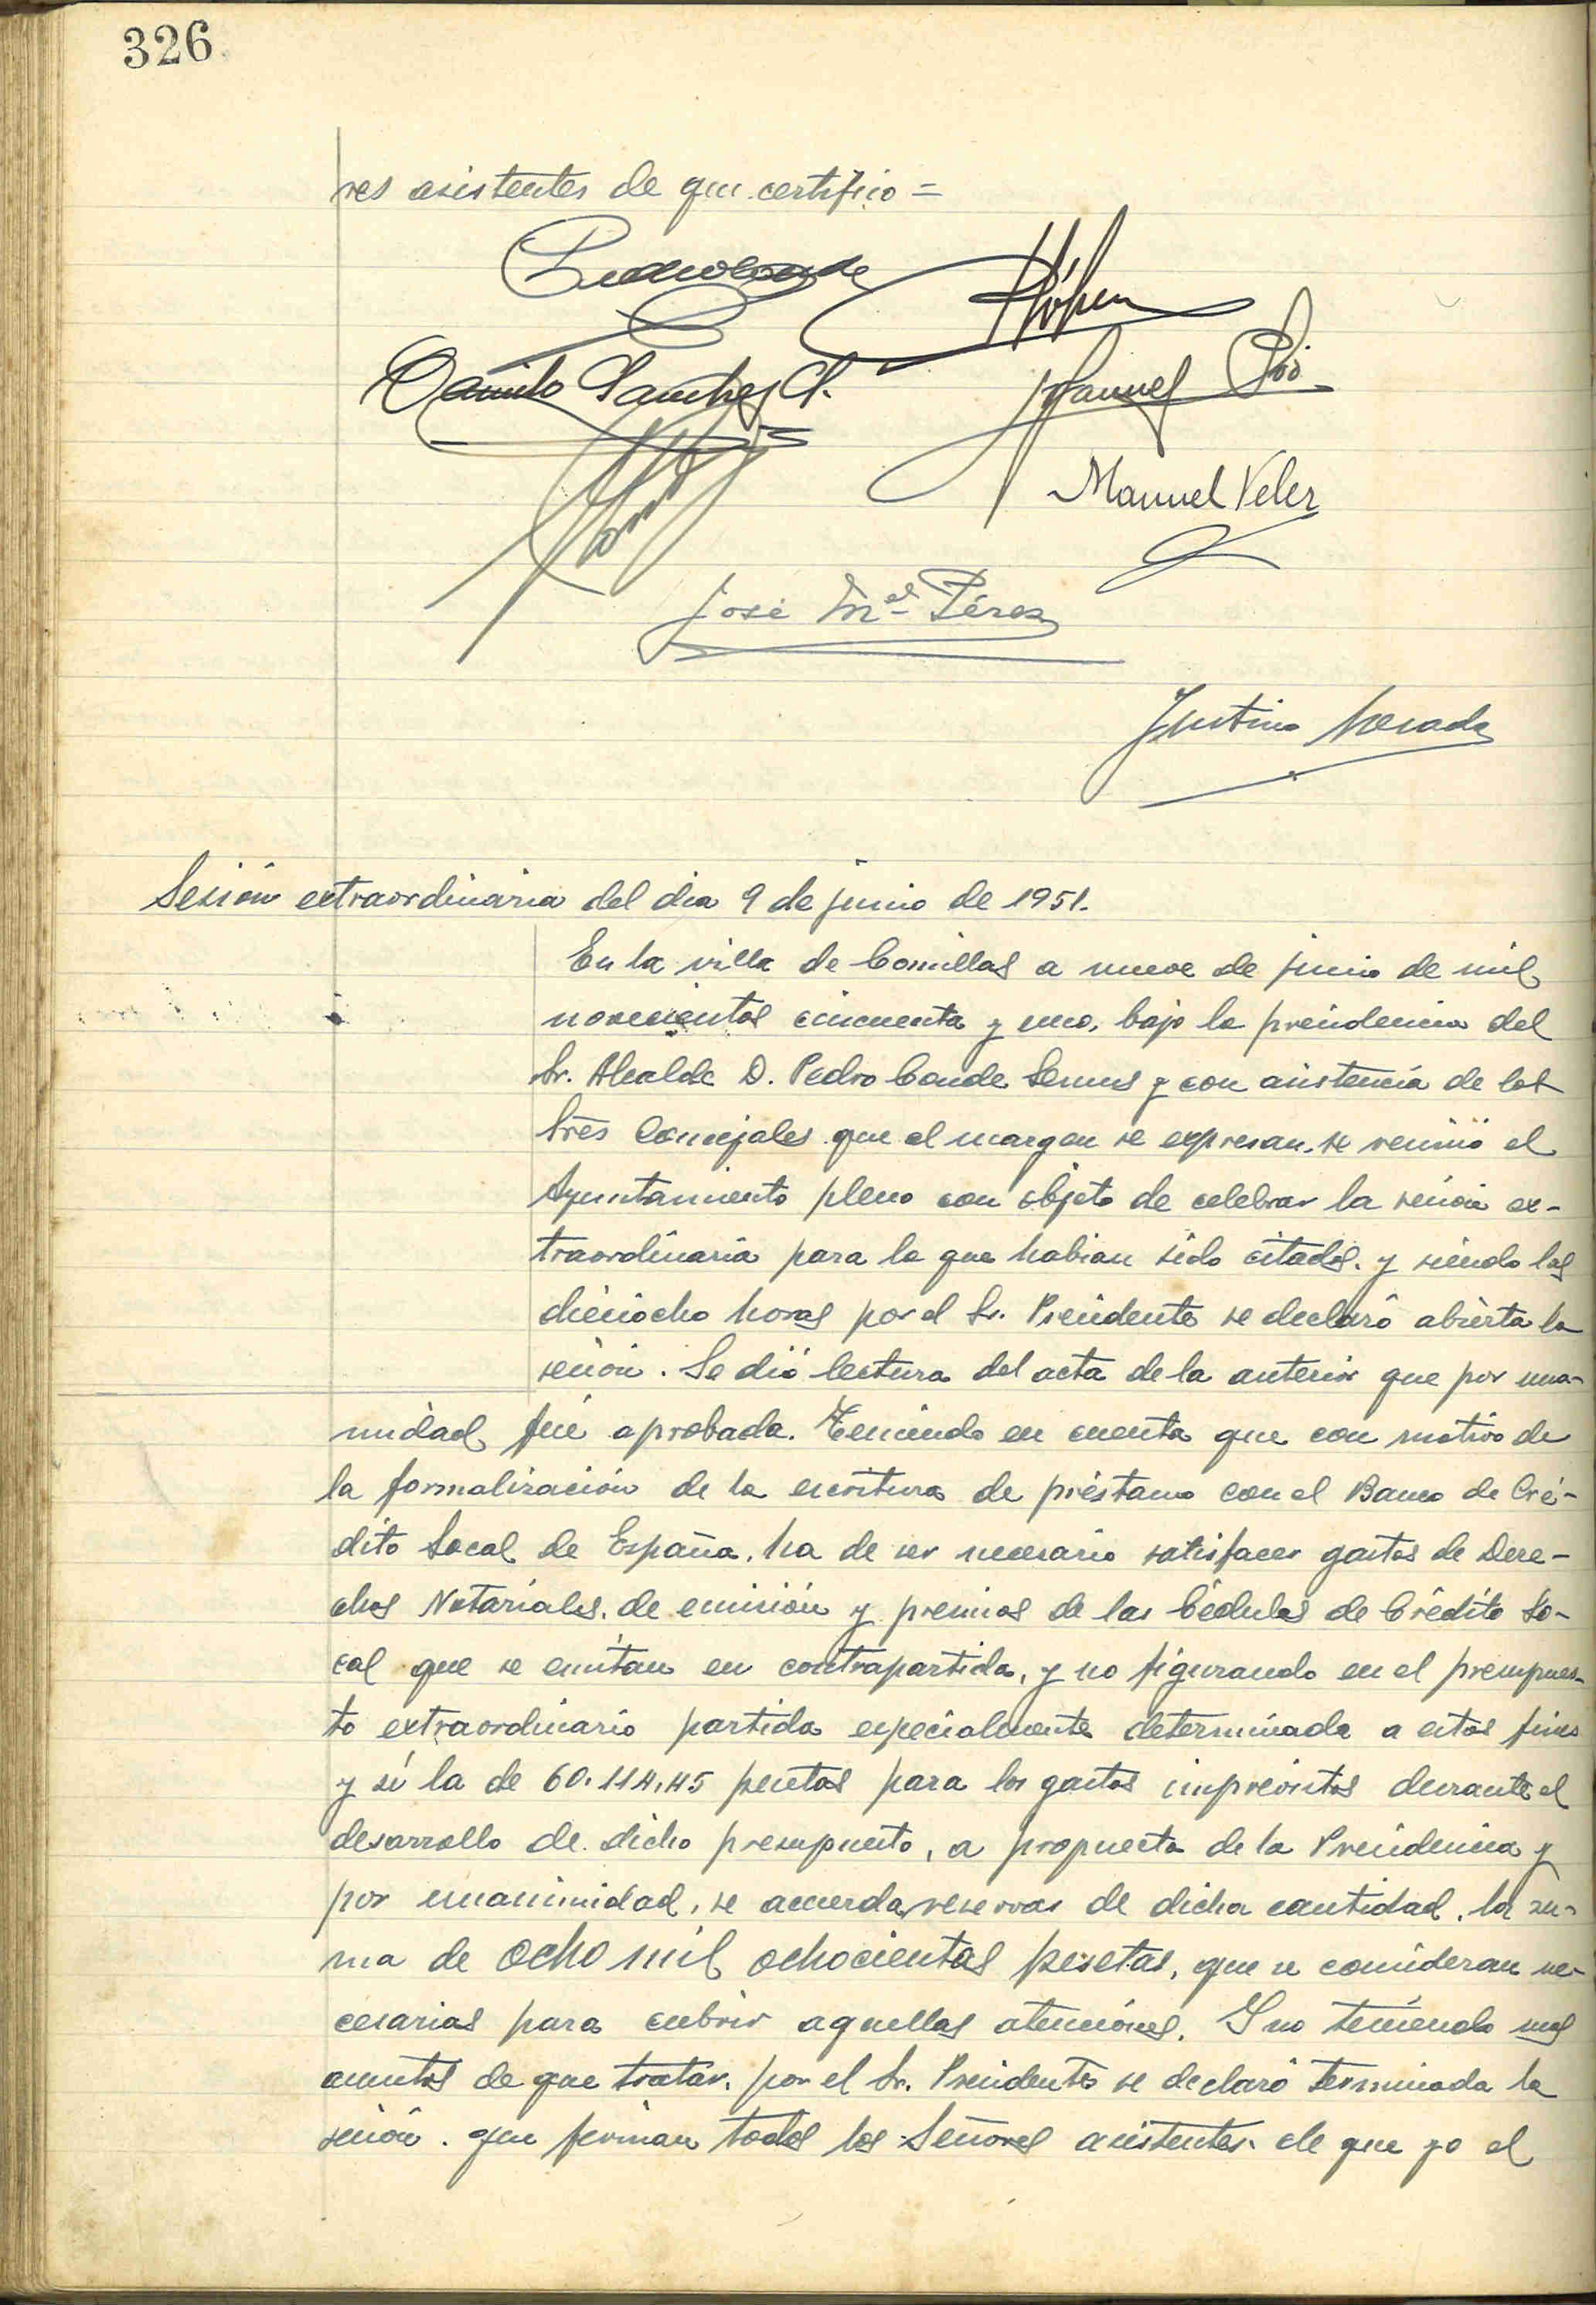 326
res asistentes de que certifico =
Camilo Sanchez
Manuel
Manuel Velez
José Mª Pérez
Justino
Sesión extraordinaria del dia 9 de junio de 1951.
En la villa de Comillas a nueve de junio de mil
novecientos cincuenta y uno, bajo la presidencia del
Sr. Alcalde D. Pedro Conde Semus y con asistencia de los
Sres Concejales que al margen se expresan, se reunió el
Ayuntamiento pleno con objeto de celebrar la sesión ex-
traordinaria para la que habian sido citados, y siendo las
dieciocho horas por el Sr. Presidente se declaró abierta la
sesión. Se dió lectura del acta de la anterior que por una-
nidad fué aprobada. Teniendo en cuenta que con motivo de
la formalización de la escritura de préstamo con el Banco de Cré-
dito Local de España, ha de ser necesario satisfacer gastos de Dere-
chos Notariales, de emisión y premios de las Cédulas de Crédito Lo-
cal que se emitan en contrapartida, y no figurando en el presupues-
to extraordinario partida especialmente determinada a estos fines
y sí la de 60.114,45 pesetas para los gastos imprevistos durante el
desarrollo de dicho presupuesto, a propuesta de la Presidencia y
por unanimidad, se acuerda reservar de dicha cantidad, la su-
ma de ocho mil ochocientas pesetas, que se consideran ne-
cesarias para cubrir aquellas atenciones. Y no teniendo mas
asuntos de que tratar, por el Sr. Presidente se declaró terminada la
sesión, que firman todos los Señores asistentes, de que yo el